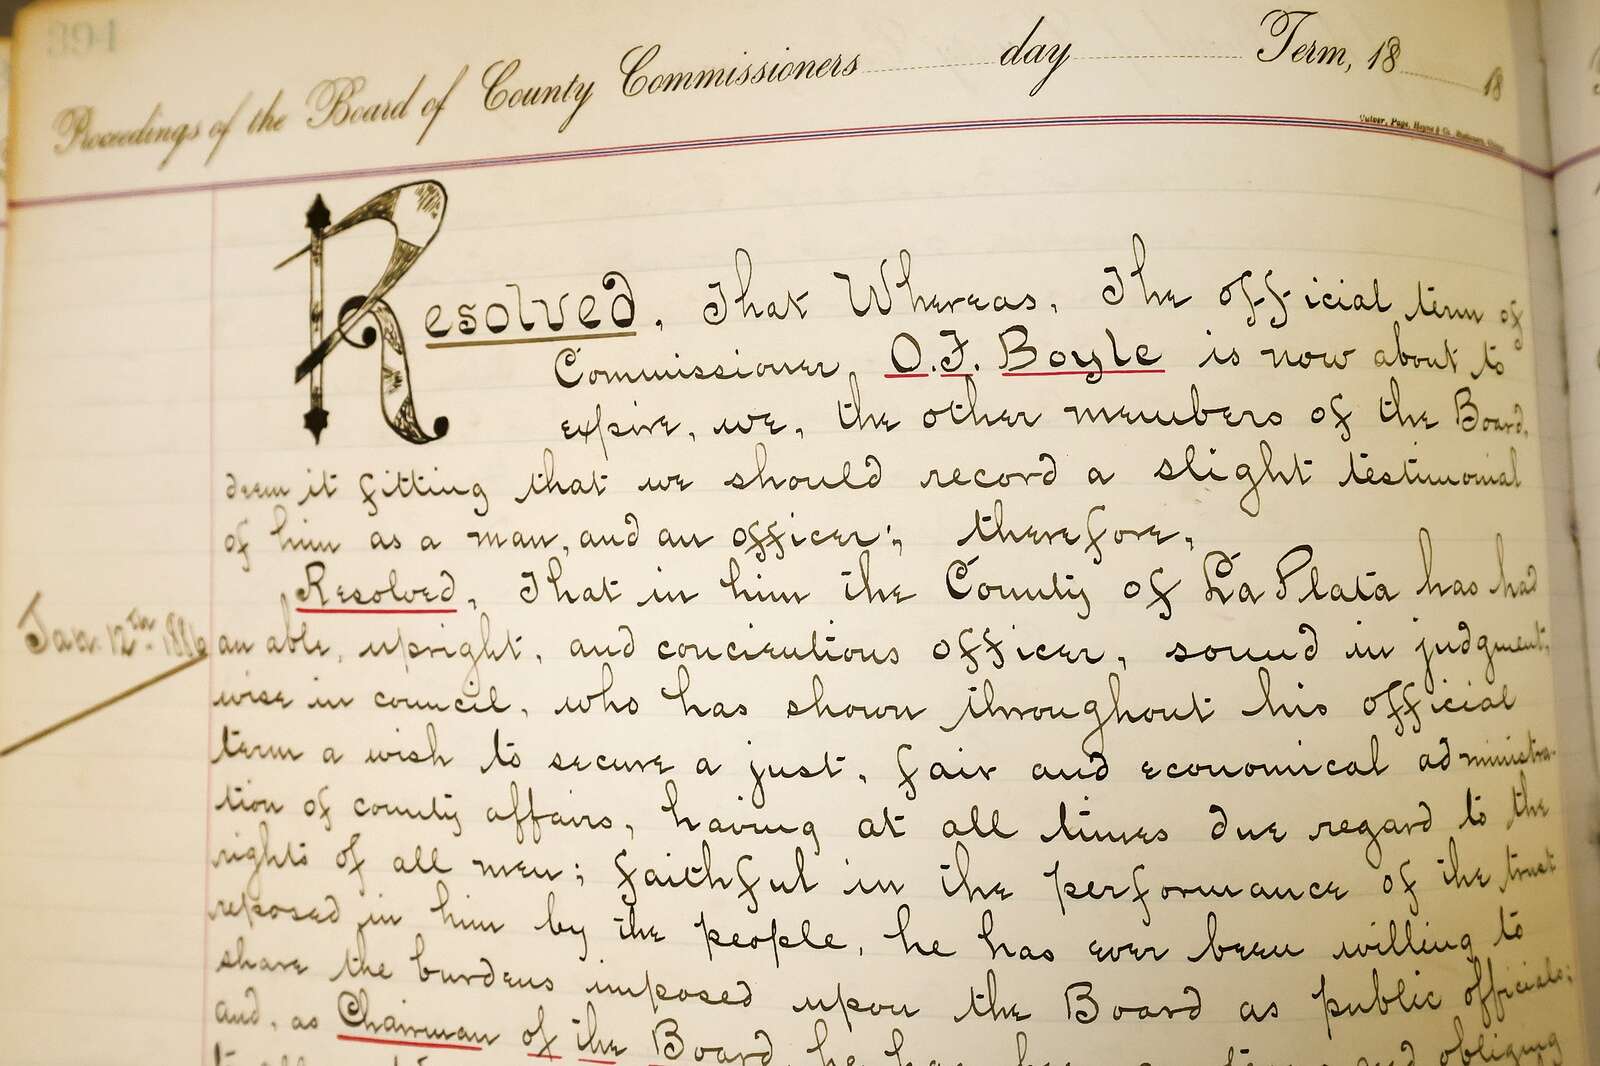 394
Proceedings of the Board of County Commissioners day Term, 18
18
Culver, Page, Hoyne & Co.
Resolved, That Whereas, The official term of
Commissioner O.F. Boyle is now about to
expire, we, the other members of the Board,
deem it fitting that we should record a slight testimonial
of him as a man, and an officer; therefore,
Resolved, That in him the County of La Plata has had
Jan. 12th 1886
an able, upright, and concientious officer, sound in judgment,
wise in council, who has shown throughout his official
term a wish to secure a just, fair and economical administra-
tion of county affairs, having at all times due regard to the
rights of all men; faithful in the performance of the trust
reposed in him by the people, he has ever been willing to
share the burdens imposed upon the Board as public officials;
and, as Chairman of the Board, he has and obliging